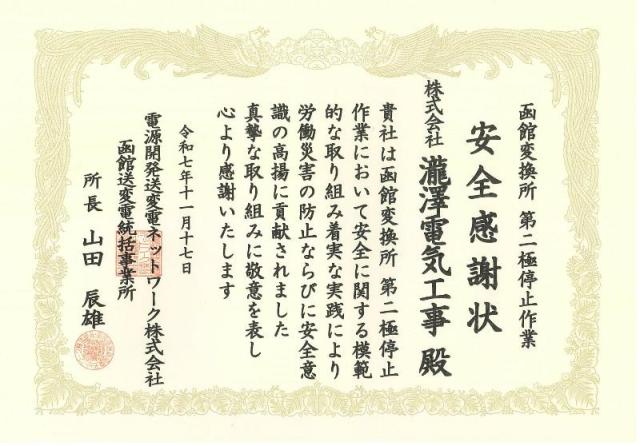 函館変換所 第二極停止作業
安全感謝状
株式会社 瀧澤電気工事 殿
貴社は函館変換所 第二極停止
作業において安全に関する模範
的な取り組み着実な実践により
労働災害の防止ならびに安全意
識の高揚に貢献されました
真摯な取り組みに敬意を表し
心より感謝いたします
令和七年十一月十七日
電源開発送変電ネットワーク株式会社
函館送変電統括事業所
所長 山田 辰雄